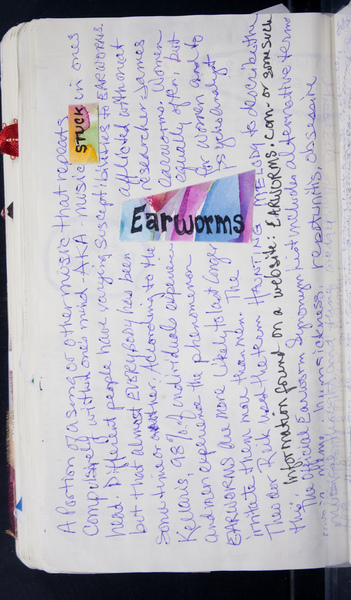 A portion of a song or other music that repeats
compulsively within one's mind - AKA - music STUCK in ones
head. Different people have varying susceptibilities to EARWORMS.
but that almost EVERYBODY has been afflicted with one at
some time or another. According to the researcher James
Kellaris, 98% of individuals experience earworms. Women
and men experience the phenomenon equally often, but
EARWORMS are more likely to last longer for women and to
irritate them more than men. The psychoanalyst
Theodor Reik used the term HAUNTING MELODY to describe the
Earworms
Information found on a website: EARWORMS.com - or some such
The Official Earworm Synonym list includes alternative terms
music meme, humsickness, repetunitis, obsessive
musical